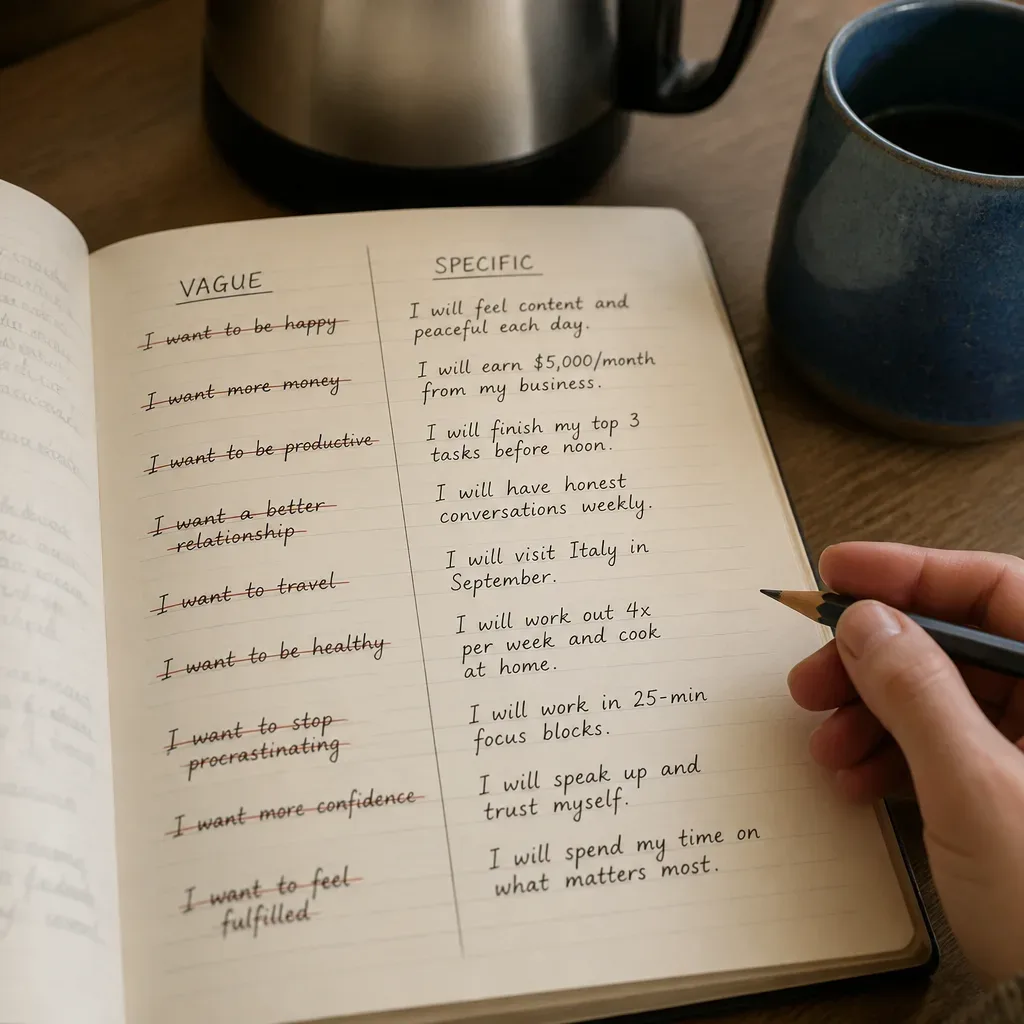 VAGUE
I want to be happy
I want more money
I want to be productive
I want a better
relationship
I want to travel
I want to be healthy
I want to stop
procrastinating
I want more confidence
I want to feel
fulfilled
SPECIFIC
I will feel content and
peaceful each day.
I will earn $5,000/month
from my business.
I will finish my top 3
tasks before noon.
I will have honest
conversations weekly.
I will visit Italy in
September.
I will work out 4x
per week and cook
at home.
I will work in 25-min
focus blocks.
I will speak up and
trust myself.
I will spend my time on
what matters most.